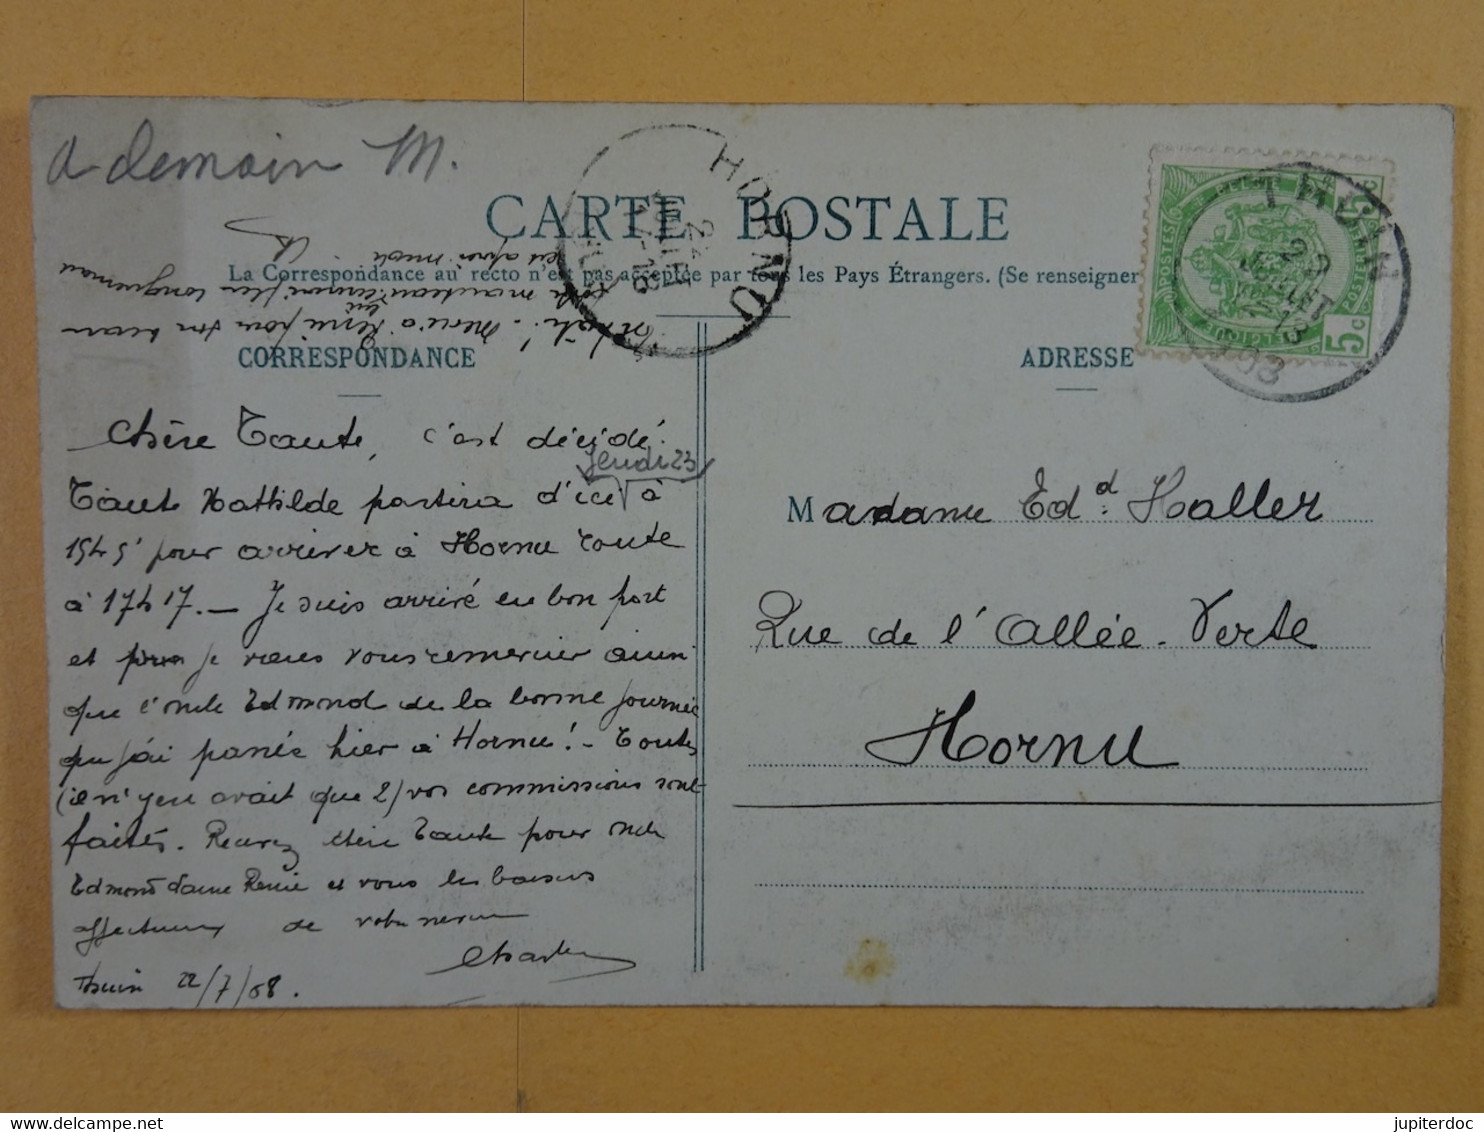 a demain M.
CARTE POSTALE
La Correspondance au recto n'est pas acceptée par tous les Pays Étrangers. (Se renseigner
CORRESPONDANCE
ADRESSE
HORNU
22
JUIL
THUIN
22
JUILLET
1908
POSTES
BELGIE
5c
Chère Tante, c'est décidé.
Jeudi 23
Tante Mathilde partira d'ici à
15h5' pour arriver à Hornu route
à 17h17. — Je suis arrivé en bon port
et je veux vous remercier ainsi
que l'oncle Edmond de la bonne journée
que j'ai passée hier à Hornu! - Toutes
(il n'y en avait que 2) vos commissions sont
faites. Recevez chère Tante pour oncle
Edmond et vous les baisers
affectueux de votre neveu
Charles
Thuin 22/7/08.
Madame Edd. Haller
Rue de l'Allée-Verte
Hornu
jupiterdoc